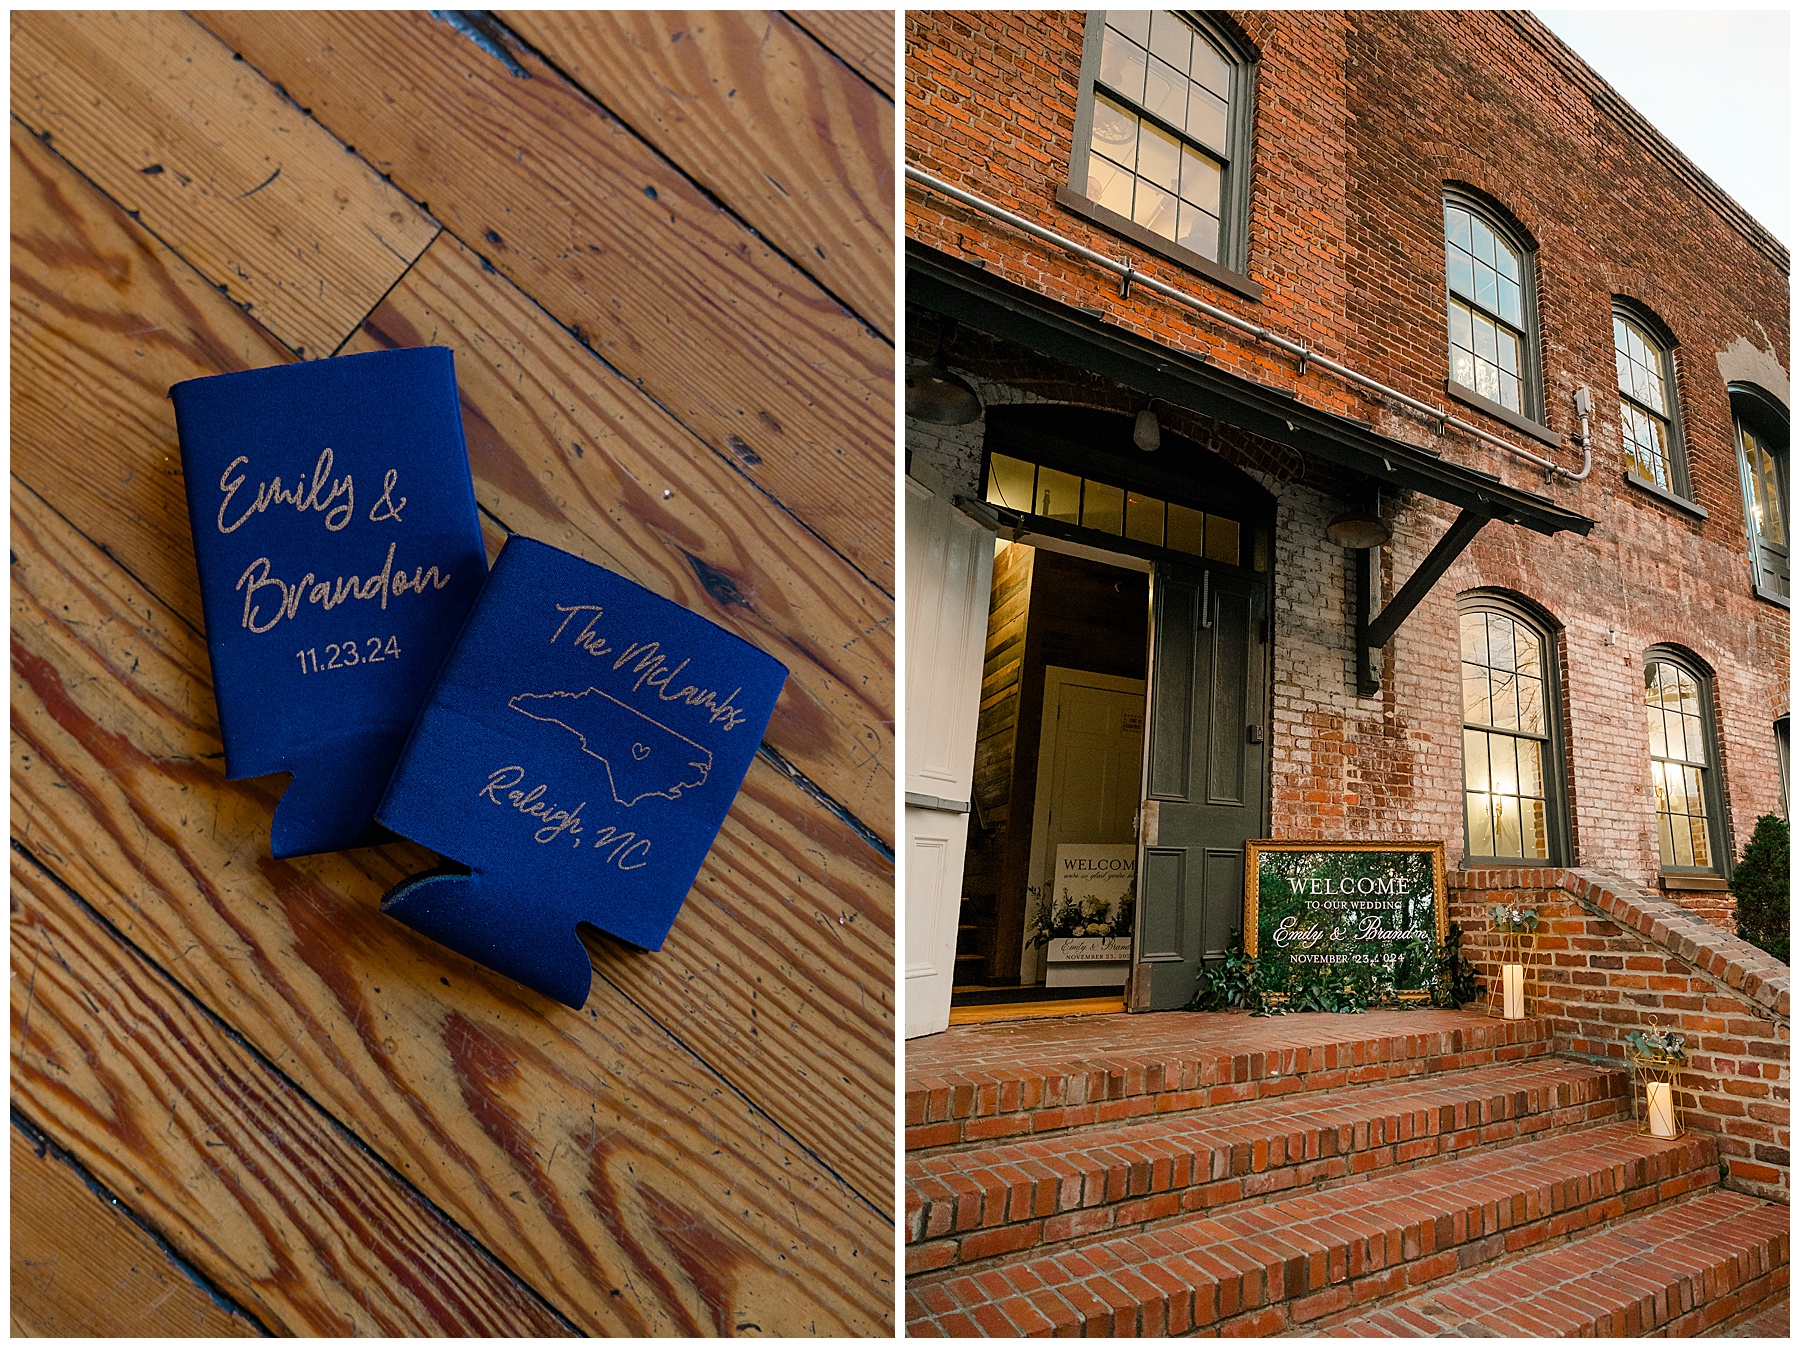 Emily &
Brandon
11.23.24
The McLambs
Raleigh, NC
WELCOM
we're so glad you're
Emily & Brand
NOVEMBER 23, 202
WELCOME
TO OUR WEDDING
Emily & Brandon
NOVEMBER 23, 2024